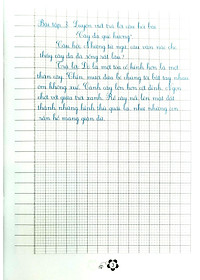 Bài tập 3: Luyện viết trả lời câu hỏi bài
"Cây đa quê hương"
Câu hỏi: Những từ ngữ, câu văn nào cho
thấy cây đa đã sống rất lâu?
Trả lời: Đó là một tòa cổ kính hơn là một
thân cây. Chín, mười đứa bé chúng tôi bắt tay nhau
ôm không xuể. Cành cây lớn hơn cột đình, ngọn
chót vót giữa trời xanh. Rễ cây nổi lên mặt đất
thành những hình thù quái lạ, như những con
rắn hổ mang giận dữ.